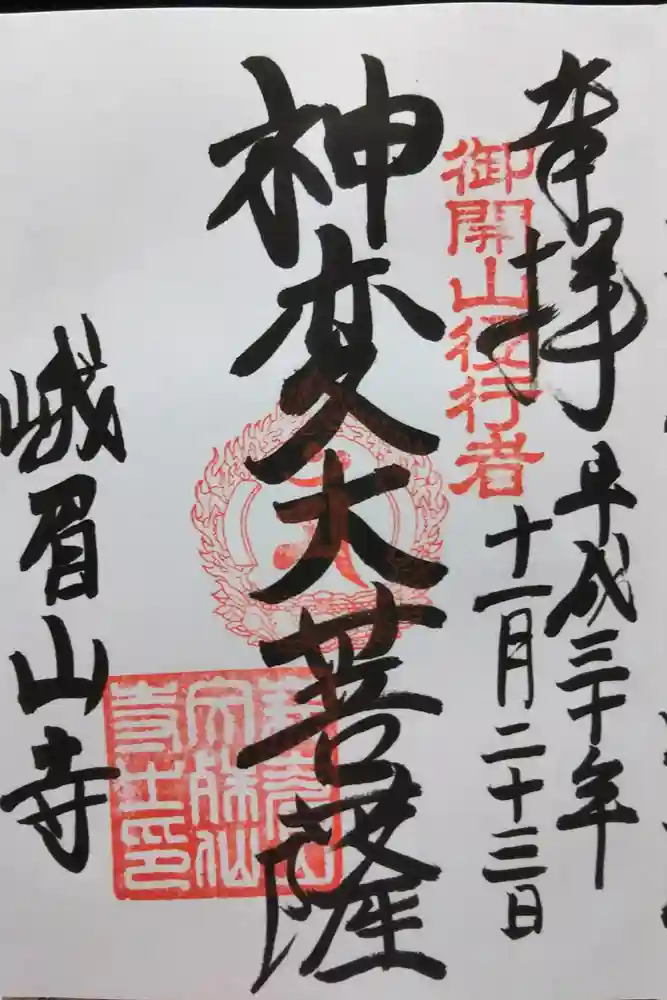 奉拝
平成三十年
十一月二十三日
御開山役行者
神変大菩薩
峨眉山寺